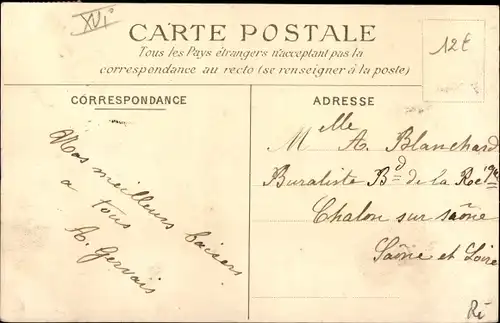 XVI
CARTE POSTALE
Tous les Pays étrangers n'acceptant pas la
correspondance au recto (se renseigner à la poste)
12€
CORRESPONDANCE
ADRESSE
Mes meilleurs baisers
a tous
A. Gervais
Melle A. Blanchard
Buraliste Bd de la Rque
Chalon sur saône
Saône et Loire